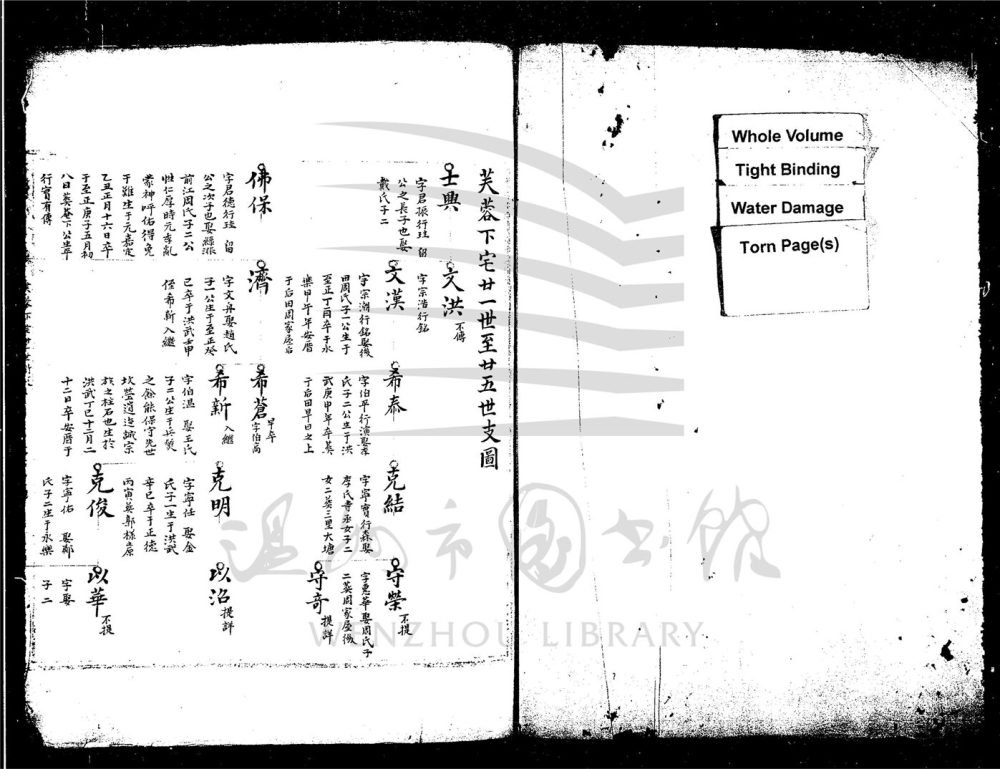 Whole Volume
Tight Binding
Water Damage
Torn Page(s)
芙蓉下宅廿一世至廿五世支圖
壬興
字君振行珏 留
公之長子也娶
戴氏子二
佛保
字君德行珏 留
公之次子也娶縣派
前江周氏子二公
性仁厚時元季亂
蒙神呼佑得免
于難生于元嘉定
乙丑正月十六日卒
于至正庚子五月初
八日葵菴下公生平
行實有傳
文洪
不傳
字宗浩行銘
文漢
字宗潮行銘娶後
田周氏子一公生于
至正丁酉卒于永
樂甲午年安厝
于后田周家屋后
濟
字文舟娶趙氏
子一公生于至正癸
已卒于洪武壬申
侄希新入繼
希泰
字伯平行演娶
氏子二公生于洪
武庚申年卒葵
于后田旱田之上
希蒼
早卒
字伯高
希新
入繼
字伯溫 娶王氏
子二公生于兵燹
之餘能保守先世
坟塋誠宗
族之柱石也生於
洪武丁巳十二月二
十二日卒安厝于
克結
字寧寶行森娶
李氏寺丞女子二
女二葵三里大塘
克明
字寧任 娶金
氏子一生于洪武
辛巳卒于正德
丙寅葵
克俊
字寧佑 娶鄭
氏子二生于永樂
守榮
不提
字惠華娶周氏子
二葵周家屋後
守奇
提詳
以治
提詳
以華
不提
字 娶
子二
溫州市圖書館
WENZHOU LIBRARY